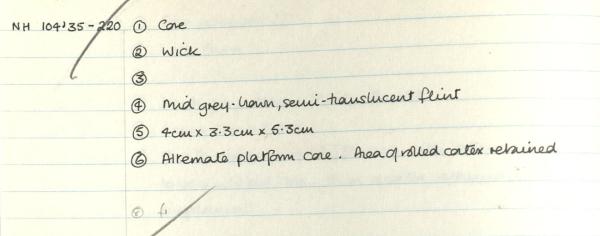 NH 104'35-220 ① Core
② Wick
③
④ Mid grey-brown, semi-translucent flint
⑤ 4cm x 3.3cm x 5.3cm
⑥ Alternate platform core. Area of rolled cortex retained